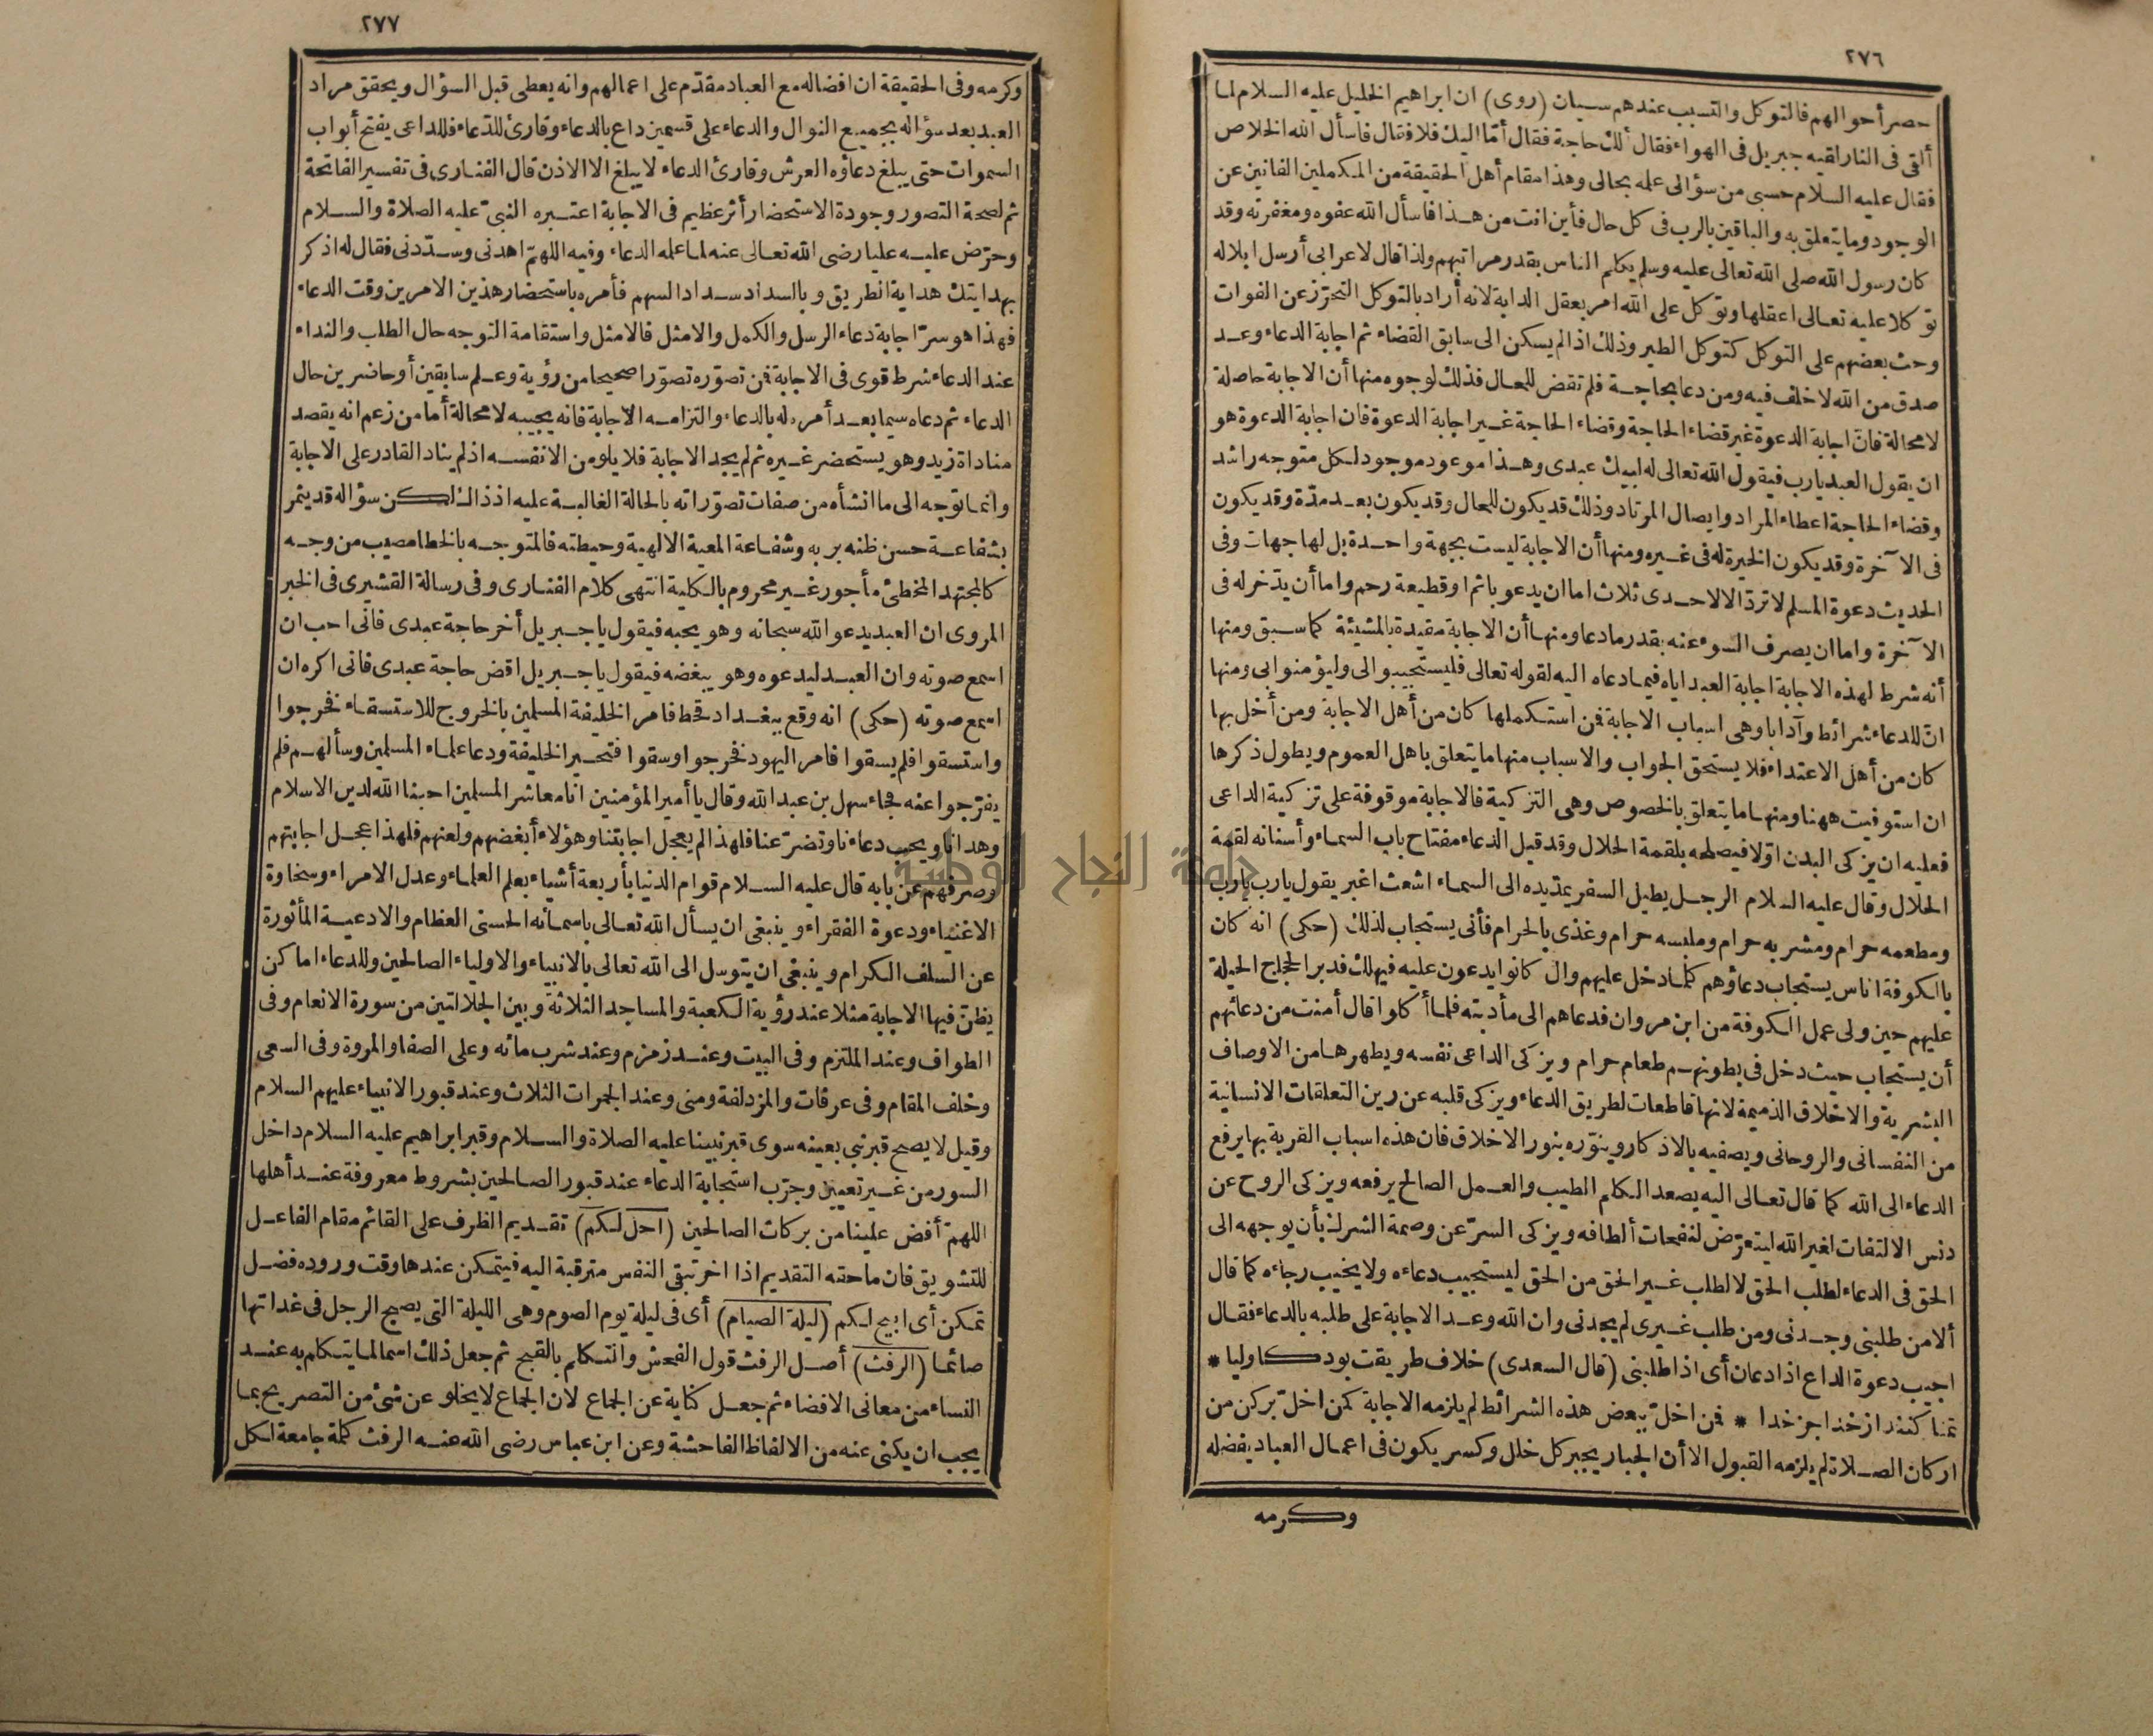 ٢٧٦
حصر أحوالهم فالتوكل والتسبب عندهم سيان (روى) ان ابراهيم الخليل عليه السلام لما
ألقى فى النار لقيه جبريل فى الهواء فقال ألك حاجة فقال أمّا اليك فلا فقال فاسأل الله الخلاص
فقال عليه السلام حسبى من سؤالى علمه بحالى وهذا مقام أهل الحقيقة من المكملين الفانين عن
الوجود وما يتعلق به والباقين بالرب فى كل حال فأين انت من هذا فاسأل الله عفوه ومغفرته وقد
كان رسول الله صلى الله تعالى عليه وسلم يكلم الناس بقدر مراتبهم ولذا قال لاعرابى أرسل ابلا له
توكلا عليه تعالى اعقلها وتوكل على الله امر بعقل الدابة لانه أراد بالتوكل التحرّز عن الفوات
وحث بعضهم على التوكل كتوكل الطير وذلك اذا لم يسكن الى سابق القضاء ثم اجابة الدعاء وعد
صدق من الله لا خلف فيه ومن دعا بحاجة فلم تقض للحال فذلك لوجوه منها أن الاجابة حاصلة
لا محالة فانّ اجابة الدعوة غير قضاء الحاجة وقضاء الحاجة غير اجابة الدعوة فان اجابة الدعوة هو
ان يقول العبد يارب فيقول الله تعالى له لبيك عبدى وهذا موعود موجود لكل متوجه راشد
وقضاء الحاجة اعطاء المراد وايصال المرتاد وذلك قد يكون للحال وقد يكون بعد مدّة وقد يكون
فى الآخرة وقد يكون الخيرة له فى غيره ومنها أن الاجابة ليست بجهة واحدة بل لها جهات وفى
الحديث دعوة المسلم لا تردّ الا لاحدى ثلاث اما ان يدعو باثم او قطيعة رحم واما أن يدّخر له فى
الآخرة واما ان يصرف السوء عنه بقدر ما دعا ومنها أن الاجابة مقيدة بالمشيئة كما سبق ومنها
أنه شرط لهذه الاجابة اجابة العبد اياه فيما دعاه اليه لقوله تعالى فليستجيبوا لى وليؤمنوا بى ومنها
انّ للدعاء شرائط وآدابا وهى اسباب الاجابة فمن استكملها كان من أهل الاجابة ومن أخل بها
كان من أهل الاعتداء فلا يستحق الجواب والاسباب منها ما يتعلق باهل العموم ويطول ذكرها
ان استوفيت ههنا ومنها ما يتعلق بالخصوص وهى التزكية فالاجابة موقوفة على تزكية الداعى
فعليه ان يزكى البدن اوّلا فيصلحه بلقمة الحلال وقد قيل الدعاء مفتاح باب السماء وأسنانه لقمة
الحلال وقال عليه السلام الرجل يطيل السفر يمدّ يده الى السماء اشعث اغبر يقول يارب يارب
ومطعمه حرام ومشربه حرام وملبسه حرام وغذى بالحرام فأنى يستجاب لذلك (حكى) انه كان
بالكوفة اناس يستجاب دعاؤهم كلما دخل عليهم وال كانوا يدعون عليه فيهلك فدبر الحجاج الحيلة
عليهم حين ولى عمل الكوفة من ابن مروان فدعاهم الى مأدبته فلما أكلوا قال أمنت من دعائهم
أن يستجاب حيث دخل فى بطونهم طعام حرام ويزكى الداعى نفسه ويطهرها من الاوصاف
البشرية والاخلاق الذميمة لانها قاطعات لطريق الدعاء ويزكى قلبه عن رين التعلقات الانسانية
من النفسانى والروحانى ويصفيه بالاذكار وينوّره بنور الاخلاق فان هذه اسباب القربة بها يرفع
الدعاء الى الله كما قال تعالى اليه يصعد الكلم الطيب والعمل الصالح يرفعه ويزكى الروح عن
دنس الالتفات لغير الله ليتعرّض لنفحات ألطافه ويزكى السرّ عن وصمة الشرك بأن يوجهه الى
الحق فى الدعاء لطلب الحق لا لطلب غير الحق من الحق ليستجيب دعاءه ولا يخيب رجاءه كما قال
ألا من طلبنى وجدنى ومن طلب غيرى لم يجدنى وان الله وعد الاجابة على طلبه بالدعاء فقال
اجيب دعوة الداع اذا دعان أى اذا طلبنى (قال السعدى) خلاف طريقت بود كاوليا *
تمنا كنند از خدا جز خدا * فمن اخلّ ببعض هذه الشرائط لم يلزمه الاجابة كمن اخلّ بركن من
اركان الصلاة لم يلزمه القبول الا أن الجبار يجبر كل خلل وكسر يكون فى اعمال العباد بفضله
وكرمه
٢٧٧
وكرمه وفى الحقيقة ان افضاله مع العباد مقدّم على اعمالهم وانه يعطى قبل السؤال ويحقق مراد
العبد بعد سؤاله بجميع النوال والدعاء على قسمين داع بالدعاء وقارئ للدّعاء فللداعى يفتح أبواب
السموات حتى يبلغ دعاؤه العرش وقارئ الدعاء لا يبلغ الا الاذن قال الفنارى فى تفسير الفاتحة
ثم لصحة التصور وجودة الاستحضار أثر عظيم فى الاجابة اعتبره النبىّ عليه الصلاة والسلام
وحرّض عليه عليا رضى الله تعالى عنه لما علمه الدعاء وفيه اللهمّ اهدنى وسدّدنى فقال له اذكر
بهدايتك هداية الطريق وبالسداد سداد السهم فأمره باستحضار هذين الامرين وقت الدعاء
فهذا هو سرّ اجابة دعاء الرسل والكمل والامثل فالامثل واستقامة التوجه حال الطلب والنداء
عند الدعاء شرط قوى فى الاجابة فمن تصوّره تصوّرا صحيحا من رؤية وعلم سابقين أو حاضرين حال
الدعاء ثم دعاه سيما بعد أمره له بالدعاء والتزامه الاجابة فانه يجيبه لا محالة أما من زعم انه يقصد
مناداة زيد وهو يستحضر غيره ثم لم يجد الاجابة فلا يلومن الا نفسه اذ لم يناد القادر على الاجابة
وانما توجه الى ما انشأه من صفات تصوّراته بالحالة الغالبة عليه اذ ذاك لكن سؤاله قد يثمر
بشفاعة حسن ظنه بربه وشفاعة المعية الالهية وحيطته فالمتوجه بالخطا مصيب من وجه
كالمجتهد المخطئ مأجور غير محروم بالكلية انتهى كلام الفنارى وفى رسالة القشيرى فى الخبر
المروى ان العبد يدعو الله سبحانه وهو يحبه فيقول يا جبريل أخر حاجة عبدى فانى احب ان
اسمع صوته وان العبد ليدعوه وهو يبغضه فيقول يا جبريل اقض حاجة عبدى فانى اكره ان
اسمع صوته (حكى) انه وقع ببغداد قحط فامر الخليفة المسلمين بالخروج للاستسقاء فخرجوا
واستسقوا فلم يسقوا فامر اليهود فخرجوا وسقوا فتحير الخليفة ودعا علماء المسلمين وسألهم فلم
يفرّجوا عنه فجاء سهل بن عبد الله وقال يا أمير المؤمنين انا معاشر المسلمين احبنا الله لدين الاسلام
وهدانا ويحب دعاءنا وتضرّعنا فلهذا لم يعجل اجابتنا وهؤلاء أبغضهم ولعنهم فلهذا عجل اجابتهم
وصرفهم عن بابه قال عليه السلام قوام الدنيا بأربعة أشياء بعلم العلماء وعدل الامراء وسخاوة
الاغنياء ودعوة الفقراء وينبغى ان يسأل الله تعالى باسمائه الحسنى العظام والادعية المأثورة
عن السلف الكرام وينبغى ان يتوسل الى الله تعالى بالانبياء والاولياء الصالحين وللدعاء اماكن
يظنّ فيها الاجابة مثلا عند رؤية الكعبة والمساجد الثلاثة وبين الجلالتين من سورة الانعام وفى
الطواف وعند الملتزم وفى البيت وعند زمزم وعند شرب مائه وعلى الصفا والمروة وفى السعى
وخلف المقام وفى عرفات والمزدلفة ومنى وعند الجمرات الثلاث وعند قبور الانبياء عليهم السلام
وقيل لا يصح قبر نبى بعينه سوى قبر نبينا عليه الصلاة والسلام وقبر ابراهيم عليه السلام داخل
السور من غير تعيين وجرّب استجابة الدعاء عند قبور الصالحين بشروط معروفة عند أهلها
اللهمّ أفض علينا من بركات الصالحين (احل لكم) تقديم الظرف على القائم مقام الفاعل
للتشويق فان ما حقه التقديم اذا اخر تبقى النفس مترقبة اليه فيتمكن عندها وقت وروده فضل
تمكن أى ابيح لكم (ليلة الصيام) أى فى ليلة يوم الصوم وهى الليلة التى يصبح الرجل فى غداتها
صائما (الرفث) أصل الرفث قول الفحش والتكلم بالقبيح ثم جعل ذلك اسما لما يتكلم به عند
النساء من معانى الافضاء ثم جعل كناية عن الجماع لان الجماع لا يخلو عن شئ من التصريح بما
يجب ان يكنى عنه من الالفاظ الفاحشة وعن ابن عباس رضى الله عنه الرفث كلمة جامعة لكل
جامعة النجاح الوطنية